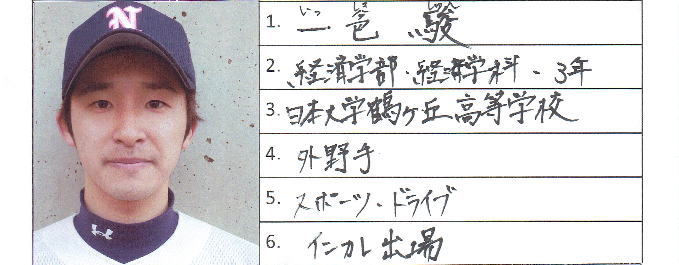 N
1. 一色 駿
2. 経済学部・経済学科・3年
3. 日本大学鶴ヶ丘高等学校
4. 外野手
5. スポーツ・ドライブ
6. インカレ出場